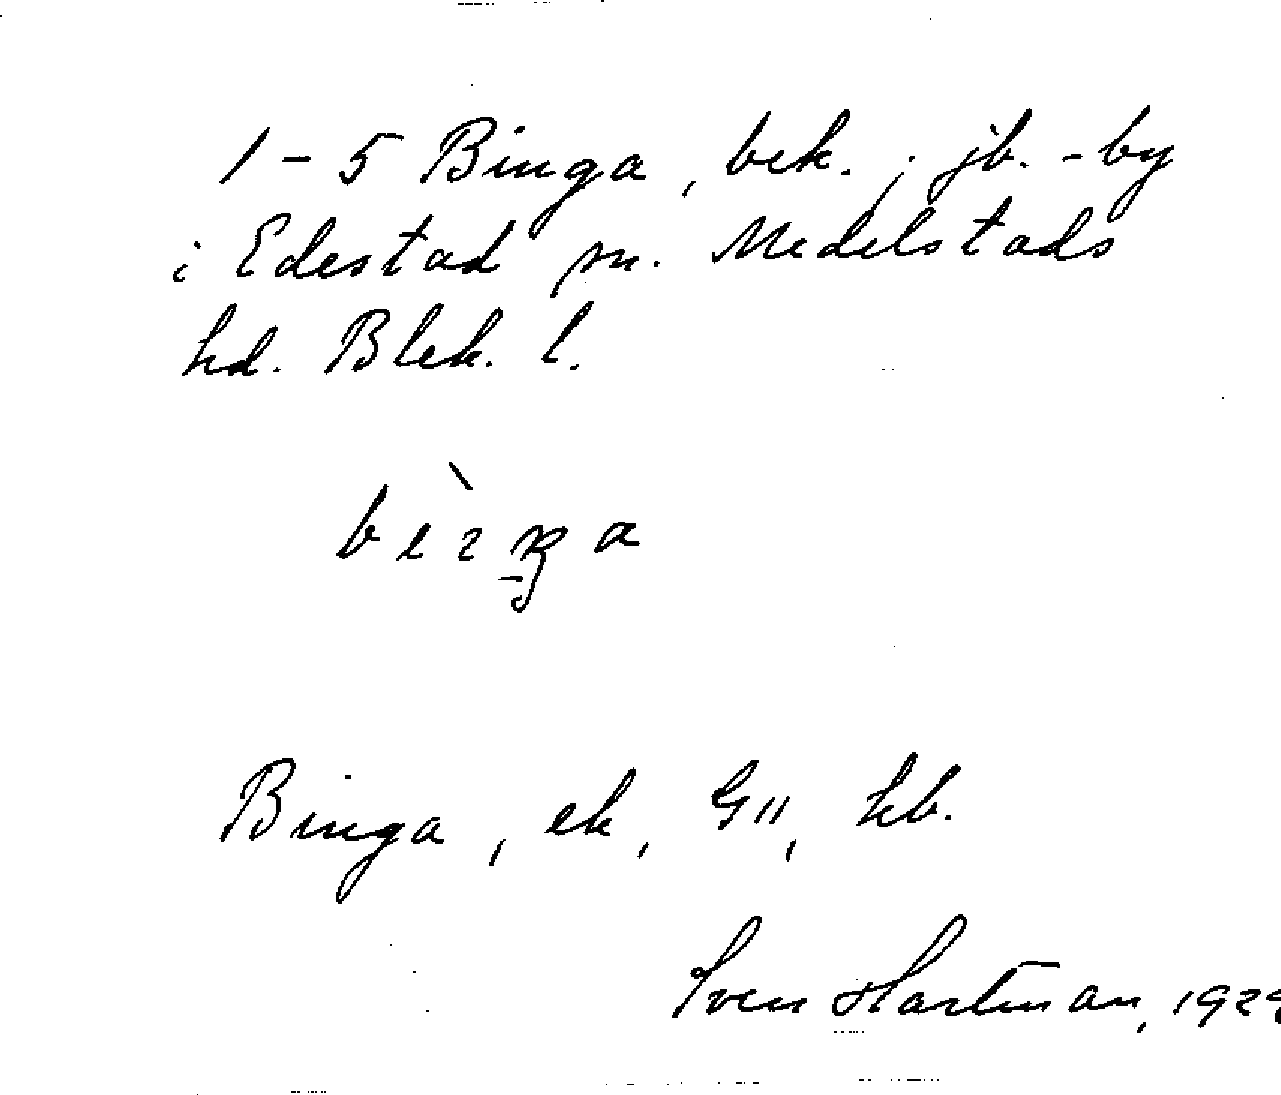 1-5 Binga, bek.; jb.-by
i Edestad sn. Medelstads
hd. Blek. l.
Binga, ek, GII, hb.
Sven Hartman, 192